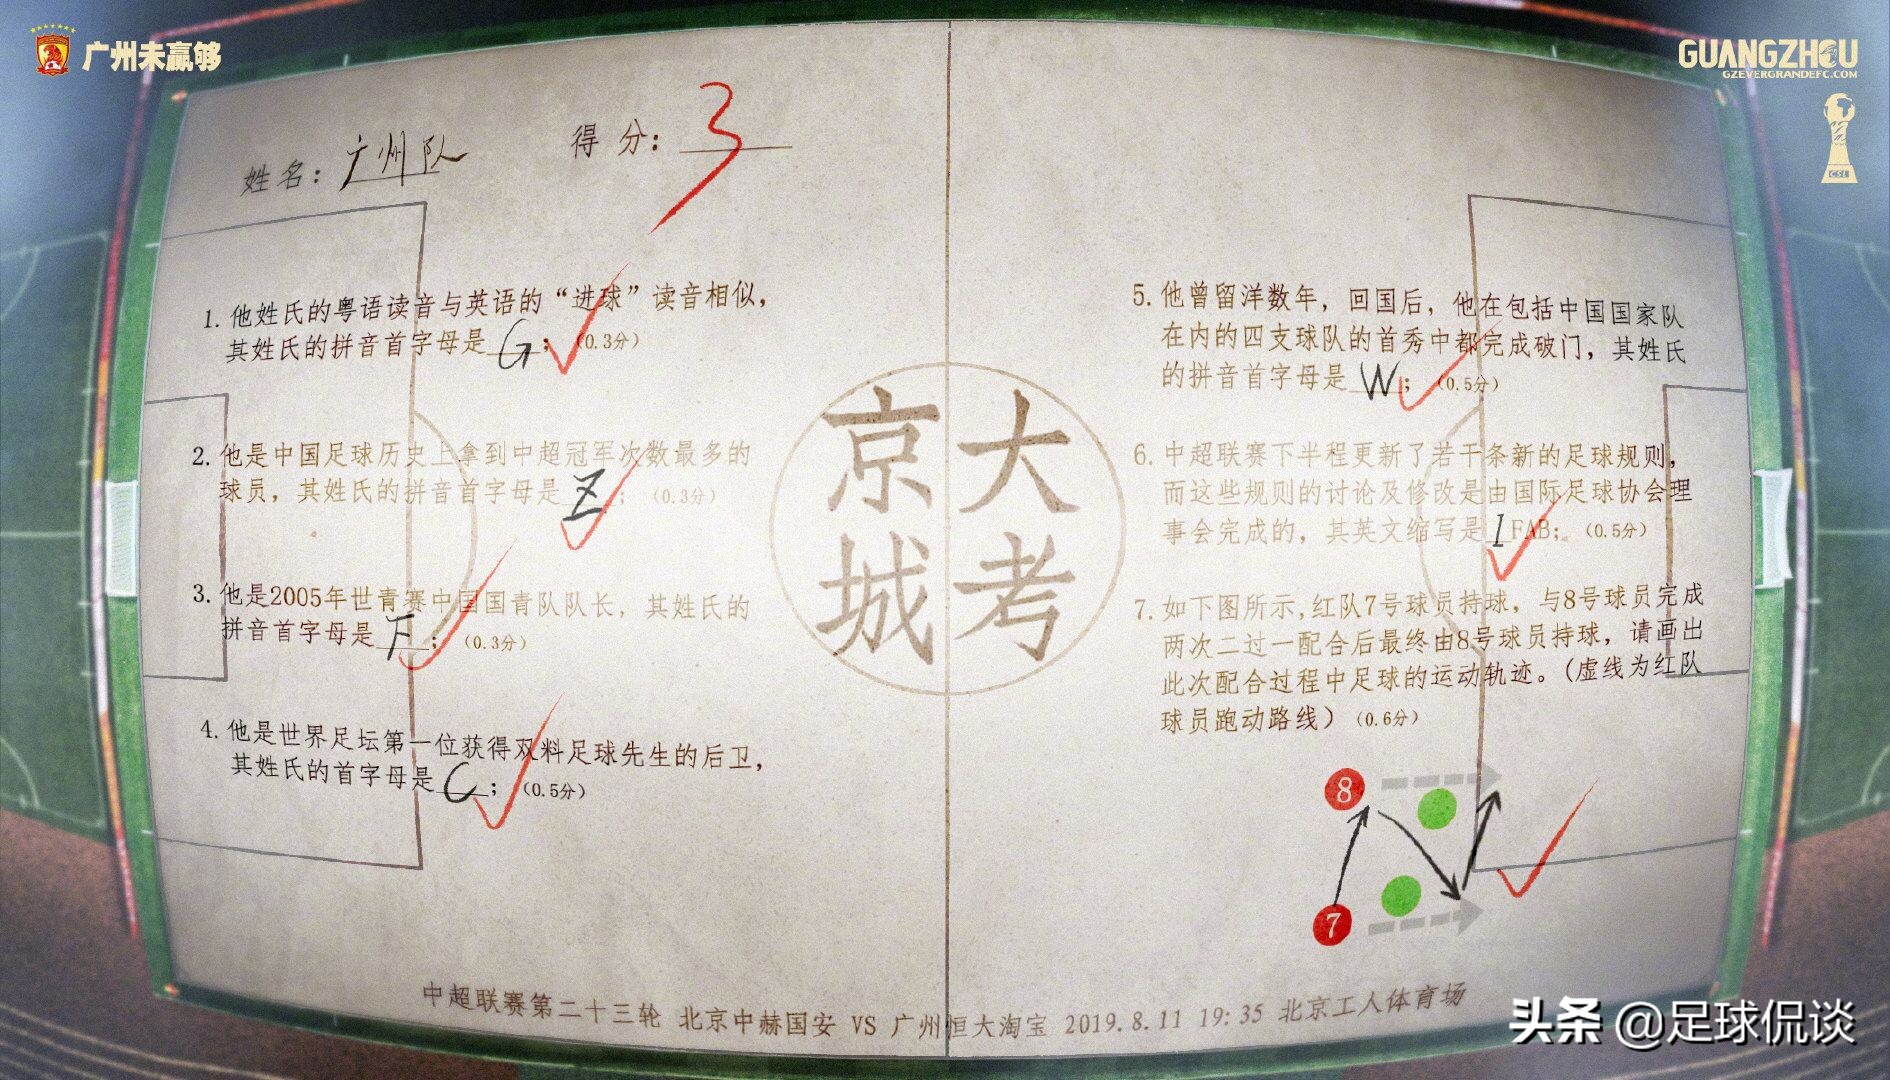 广州未赢够
GUANGZHOU
GZEVERGRANDEFC.COM
CSL
姓名：广州队
得分：3
1. 他姓氏的粤语读音与英语的“进球”读音相似，
其姓氏的拼音首字母是G；（0.3分）
2. 他是中国足球历史上拿到中超冠军次数最多的
球员，其姓氏的拼音首字母是Z；（0.3分）
3. 他是2005年世青赛中国国青队队长，其姓氏的
拼音首字母是F；（0.3分）
4. 他是世界足坛第一位获得双料足球先生的后卫，
其姓氏的首字母是C；（0.5分）
京大
城考
5. 他曾留洋数年，回国后，他在包括中国国家队
在内的四支球队的首秀中都完成破门，其姓氏
的拼音首字母是W；（0.5分）
6. 中超联赛下半程更新了若干条新的足球规则，
而这些规则的讨论及修改是由国际足球协会理
事会完成的，其英文缩写是IFAB；（0.5分）
7. 如下图所示，红队7号球员持球，与8号球员完成
两次二过一配合后最终由8号球员持球，请画出
此次配合过程中足球的运动轨迹。（虚线为红队
球员跑动路线）（0.6分）
8
7
中超联赛第二十三轮 北京中赫国安 VS 广州恒大淘宝 2019.8.11 19:35 北京工人体育场
头条 @足球侃谈